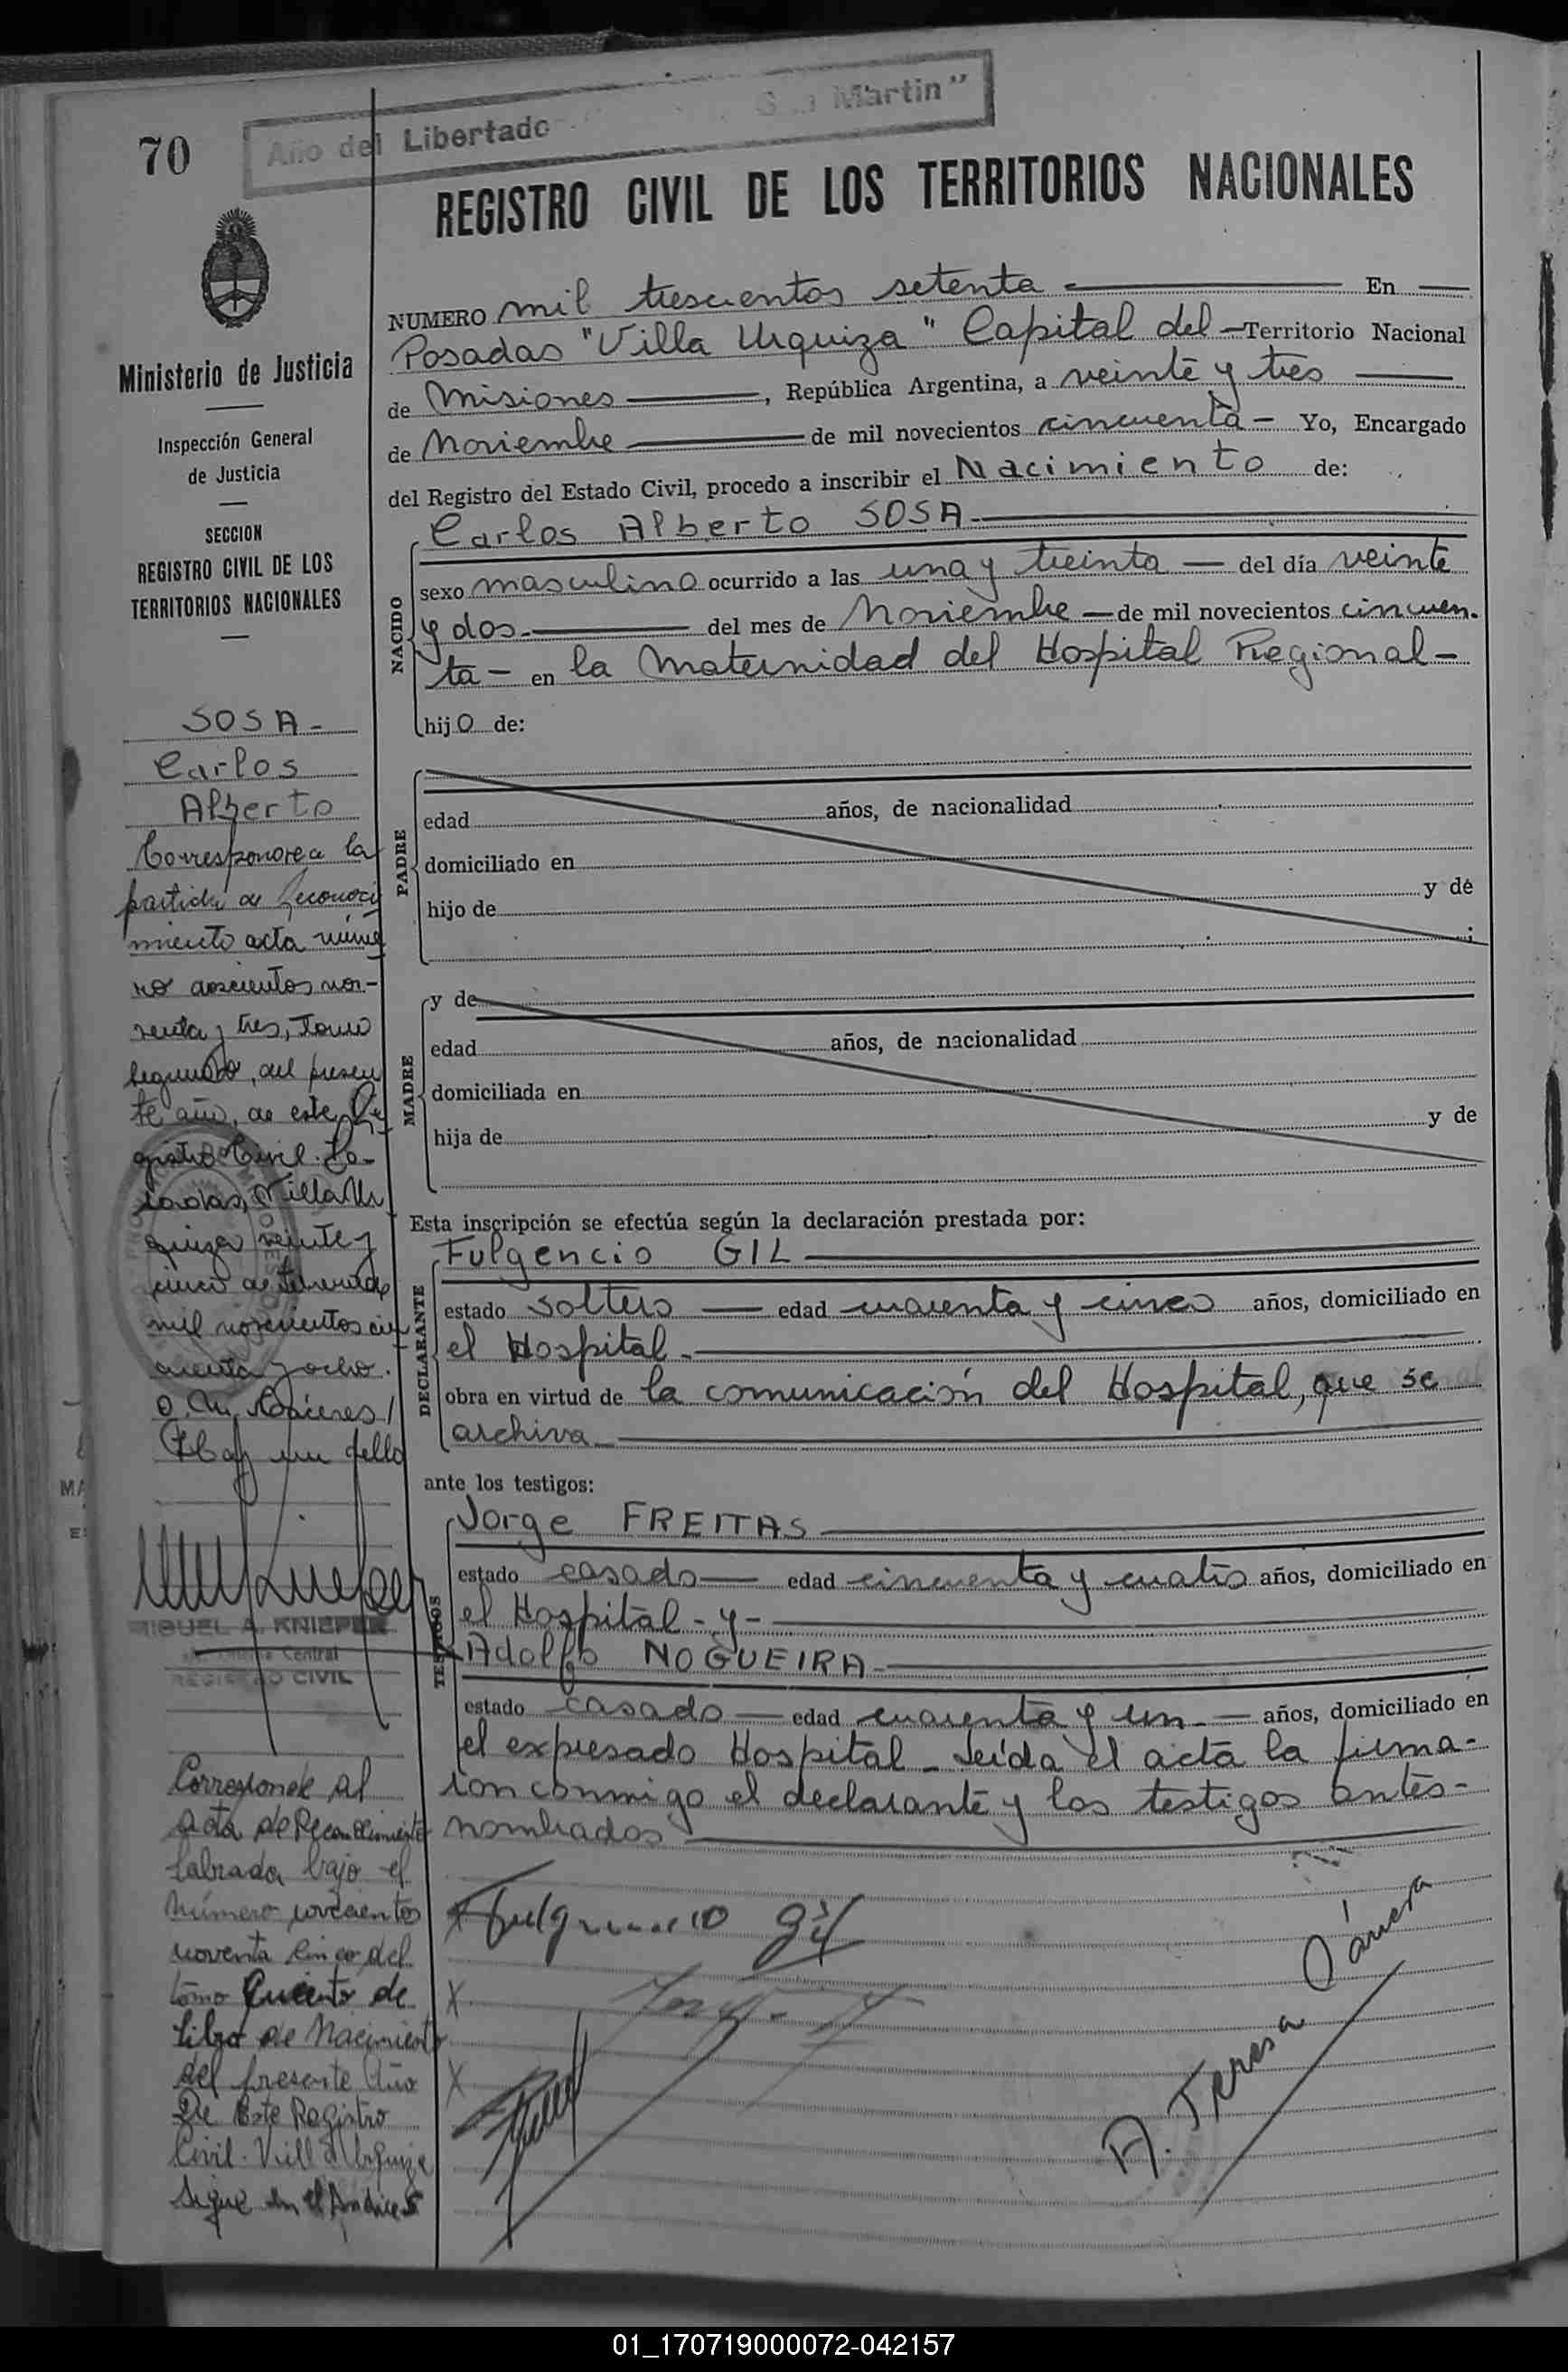 70
Año del Libertado
San Martin"
REGISTRO CIVIL DE LOS TERRITORIOS NACIONALES
Ministerio de Justicia
Inspección General
de Justicia
SECCION
REGISTRO CIVIL DE LOS
TERRITORIOS NACIONALES
NUMERO mil trescientos setenta En
Posadas "Villa Urquiza" Capital del Territorio Nacional
de Misiones, República Argentina, a veinte y tres
de Noviembre de mil novecientos cincuenta - Yo, Encargado
del Registro del Estado Civil, procedo a inscribir el Nacimiento de:
NACIDO
Carlos Alberto SOSA
sexo masculino ocurrido a las una y treinta del día veinte
y dos del mes de Noviembre de mil novecientos cincuen-
ta - en la Maternidad del Hospital Regional -
hijo de:
PADRE
edad años, de nacionalidad
domiciliado en
hijo de y de
MADRE
y de
edad años, de nacionalidad
domiciliada en
hija de y de
Esta inscripción se efectúa según la declaración prestada por:
DECLARANTE
Fulgencio GIL
estado soltero edad cuarenta y cinco años, domiciliado en
el Hospital.
obra en virtud de la comunicación del Hospital, que se
archiva
ante los testigos:
TESTIGOS
Jorge FREITAS
estado casado edad cincuenta y cuatro años, domiciliado en
el Hospital - y -
Adolfo NOGUEIRA
estado casado edad cuarenta y un años, domiciliado en
el expresado Hospital - Leída el acta la firma-
ron conmigo el declarante y los testigos antes-
nombrados
Fulgencio Gil
X
X
A. Teresa Cáceres
SOSA -
Carlos
Alberto
Corresponde a la
partida de Reconoci
miento acta núme
ro doscientos no-
venta y tres, Tomo
segundo, del presen
te año, de este Re
gistro Civil. Po-
sadas, Villa Ur
quiza veinte y
cinco de
mil novecientos cin
cuenta y ocho.
O. M. Cáceres/
Hay un sello
MIGUEL A. KNIEPER
Central
REGISTRO CIVIL
Corresponde al
acta de Reconocimiento
labrada bajo el
Número
noventa cinco del
tomo Quinto de
Libro de Nacimiento
del presente Año
De Este Registro
Civil. Villa Urquiza
Sigue en el Indice
01_170719000072-042157